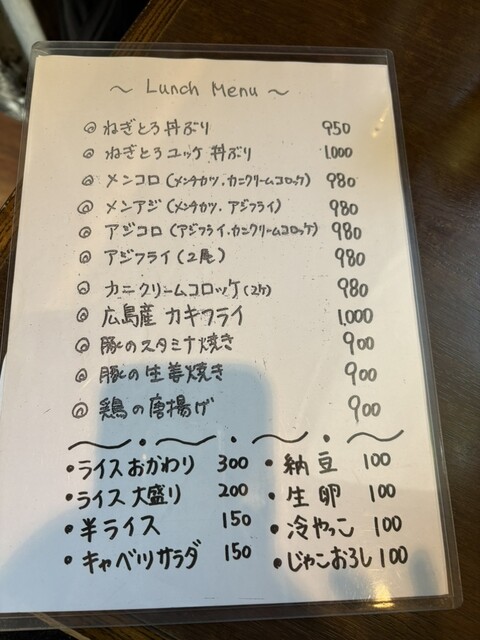 ～ Lunch Menu ～
◎ ねぎとろ丼ぶり 950
◎ ねぎとろユッケ丼ぶり 1.000
◎ メンコロ (メンチカツ.カニクリームコロッケ) 980
◎ メンアジ (メンチカツ.アジフライ) 980
◎ アジコロ (アジフライ.カニクリームコロッケ) 980
◎ アジフライ (2尾) 980
◎ カニクリームコロッケ (2ケ) 980
◎ 広島産 カキフライ 1.000
◎ 豚のスタミナ焼き 900
◎ 豚の生姜焼き 900
◎ 鶏の唐揚げ 900
・ライスおかわり 300
・ライス大盛り 200
・半ライス 150
・キャベツサラダ 150
・納豆 100
・生卵 100
・冷やっこ 100
・じゃこおろし 100